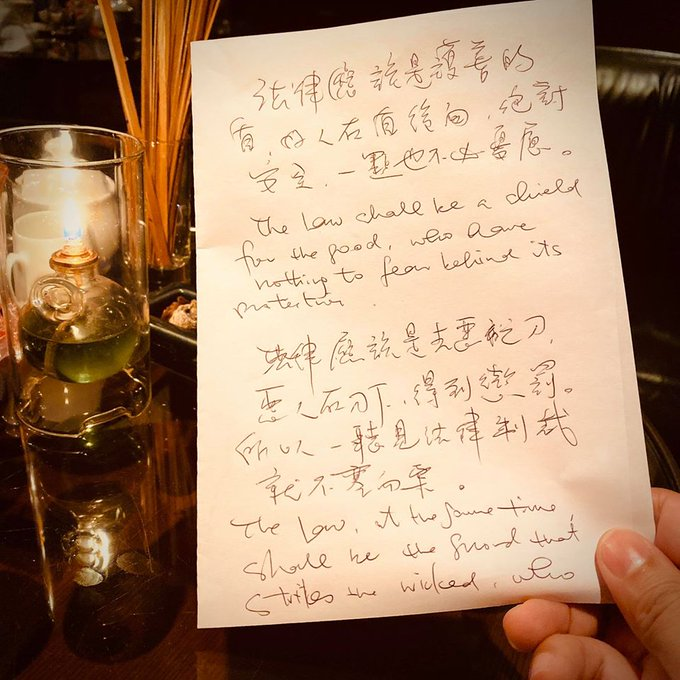 法律應該是護善的
盾,好人在盾後面,絕對
安全,一點也不必憂慮。
The Law shall be a shield
for the good, who have
nothing to fear behind its
protection.
法律應該是去惡刀,
惡人在刀下,得到懲罰。
所以一聽見法律制裁
就不寒而栗。
The Law, at the same time,
shall be the sword that
strikes the wicked, who